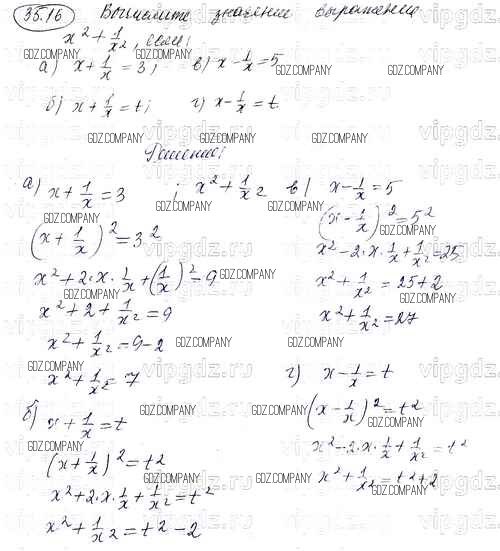 35.16 Вычислите значение выражения
x² + 1/x², если:
а) x + 1/x = 3; в) x - 1/x = 5
б) x + 1/x = t; г) x - 1/x = t
Решение:
а) x + 1/x = 3 ; x² + 1/x²
(x + 1/x)² = 3²
x² + 2·x·1/x + (1/x)² = 9
x² + 2 + 1/x² = 9
x² + 1/x² = 9 - 2
x² + 1/x² = 7
б) x + 1/x = t
(x + 1/x)² = t²
x² + 2·x·1/x + 1/x² = t²
x² + 1/x² = t² - 2
в) x - 1/x = 5
(x - 1/x)² = 5²
x² - 2·x·1/x + 1/x² = 25
x² + 1/x² = 25 + 2
x² + 1/x² = 27
г) x - 1/x = t
(x - 1/x)² = t²
x² - 2·x·1/x + 1/x² = t²
x² + 1/x² = t² + 2
GDZ.COMPANY
vipgdz.ru